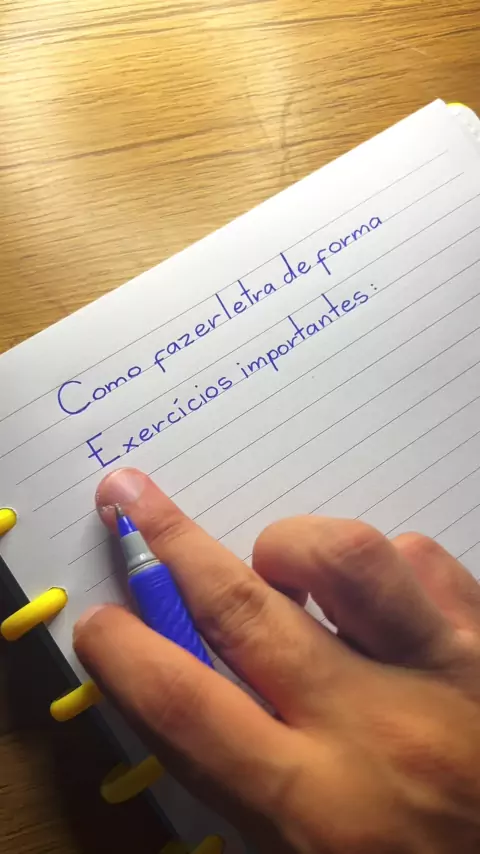 Como fazer letra de forma
Exercícios importantes: